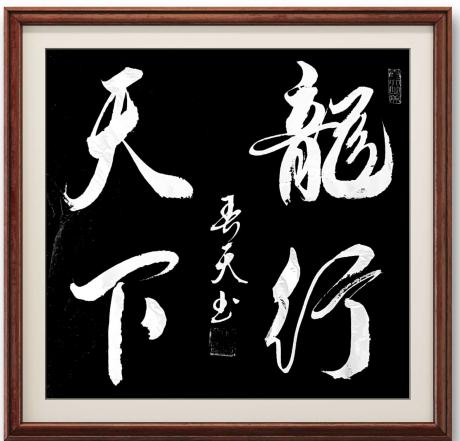 龍行
天下
春天书